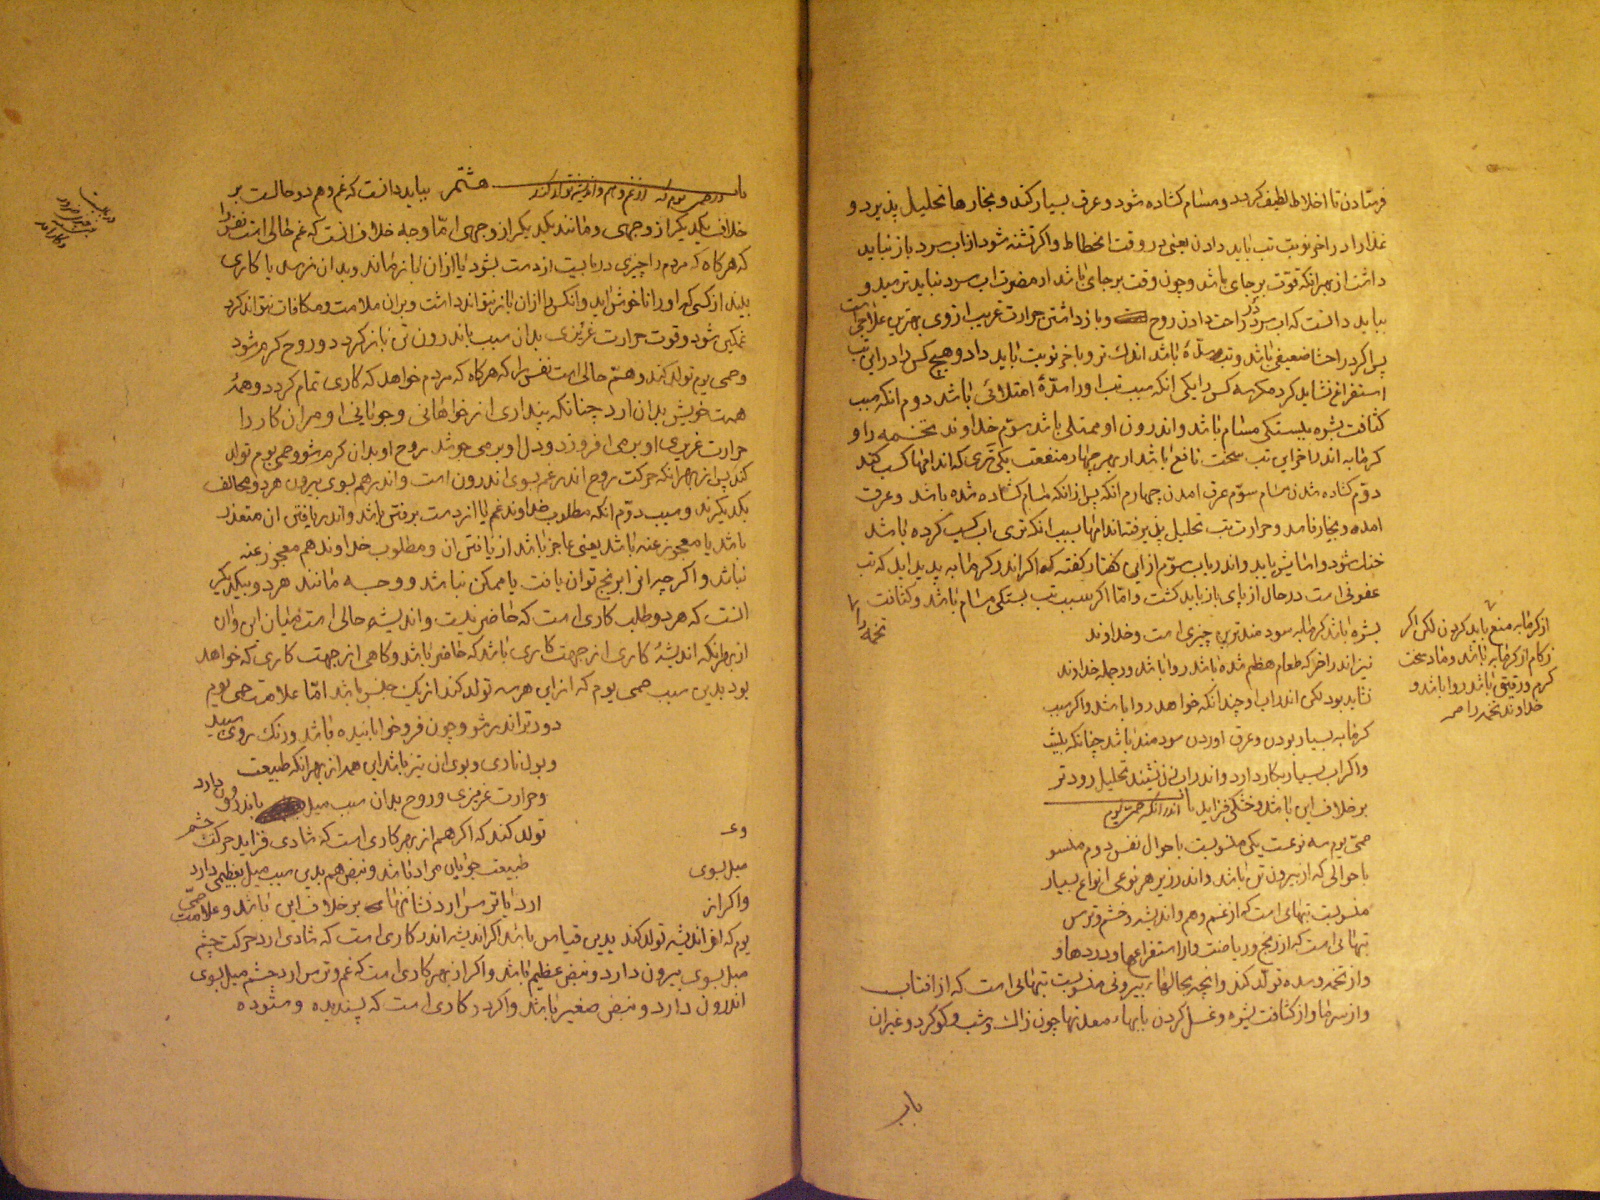 فرستادن تا اخلاط لطیف کردد و مسام کشاده شود و عرق بسیار کند و بخارها تحلیل پذیرد و
غذا را در اخر نوبت تب باید دادن یعنی در وقت انحطاط و اکر تشنه شود از اب سرد باز نباید
داشت از بهر انکه قوت بر جای باشد و چون وقت بر جای باشد از مضرت اب سرد نباید ترسید و
بباید دانست که اب سرد در راحت دادن روح و باز داشتن حرارت غریب از وی بهترین علاجی است
پس اکر در احشا ضعیفی باشد و تب سده باشد اندک تر و باخر نوبت باید داد و هیچ کس را در این تب
استفراغ نشاید کرد مکر سه کس را یکی انکه سبب تب او را مدّهٔ امتلائی باشد دوم انکه سبب
کثافت بشره بستکی مسام باشد و اندرون او ممتلی باشد سوّم خداوند تخمه را و
کرمابه اندر اخر این تب سخت نافع باشد از بهر چهار منفعت یکی تری که اندامها کسب کند
دوّم کشاده شدن مسام سوّم عرق امدن چهارم انکه پس از انکه مسام کشاده شده باشد و عرق
امده و بخار فامد و حرارت تب تحلیل پذیرفته اندامها بسبب انک تری اب کسب کرده باشد
خنک شود و اسایش یابد و اندر باب سوّم از این کفتار کفته که اکر اندر کرمابه پدید اید که تب
عفونی است در حال از بای باز باید کشت و امّا اکر سبب تب بستکی مسام باشد و کثافت
بشره باشد کرمابه سودمندترین چیزی است و خداوند تخمه را
نیز اندر اخر که طعام هظم شده باشد روا باشد و در جمله خداوند
نشاید بود لکن اندر اب او چندانکه خواهد روا باشد و اکر سبب
کرمابه بسیار بودن و عرق اوردن سودمند باشد چنانکه
و اکر اب بسیار بکار دارد و اندر ابزن نشیند تحلیل زودتر
بر خلاف این باشد و خشکی فزاید باب اندر انکه حمی یوم
حمّی یوم سه نوعست یکی منسوبست باحوال نفس دوم منسو
باحوالی که از بیرون تن باشد و اندر زیر هر نوعی انواع بسیار
منسوبست تبهائی است که از غم و هم و اندیشه و خشم و ترس
تبهائی است که از رنج و ریاضت و از استفراغها و دردها و
و از تخمه و سده تولّد کند و انچه بحالهاء بیرونی منسوبست تبهائی است که از افتاب
و از سرما و از کثافت بشره و غسل کردن بابهاء معدنها چون زاک و شب و کوکرد و غیر ان
باب
از کرمابه منع باید کردن لکن اکر
زکام از کرمابه باشد و ماده سخت
کرم و رقیق باشد روا باشد و
خداوند تخمه را
باب هشتم در حمی یوم که از غم و هم و اندیشه تولد کند بباید دانست که غم و هم دو حالست بر
خلاف یکدیکر از وجهی و مانند یکدیکر از وجهی امّا وجه خلاف انست که غم حالی است نفس را
که هر کاه که مردم را چیزی دربایست از دست بشود یا از ان باز ماند و بدان نرسد یا کاری
بیند از کسی که او را ناخوش اید و انکس را از ان باز نتواند داشت و بر ان ملامت و مکافات نتواند کرد
غمکین شود و قوت حرارت غریزی بدان سبب باندرون تن باز کردد و روح کرم شود
و حمی یوم تولد کند و همّ حالی است نفس را که هر کاه که مردم خواهد که کاری تمام کردد و همهٔ
همت خویش بدان ارد چنانکه پنداری از خواهانی و جویایی او مر ان کار را
حرارت غریزی او بر می افروزد و دل او بر می جوشد روح او بدان کرم شود و حمی یوم تولد
کند پس از بهر انکه حرکت روح اندر غم بسوی اندرون است و اندر هم بسوی بیرون هر دو مخالف
یکدیکرند و سبب دوّم انکه مطلوب خداوند غم یا از دست برفتن باشد و اندر یافتن ان متعذر
باشد یا معجوز عنه باشد یعنی عاجز باشد از یافتن ان و مطلوب خداوند هم معجوز عنه
نباشد و اکر چه از ابرنج توان یافت یا ممکن نباشد و وجه مانند هر دو بیکدیکر
انست که هر دو طلب کاری است که حاضر نیست و اندیشه حالی است میان این و ان
از بهر انکه اندیشهٔ کاری از جهت کاری باشد که حاضر باشد و کاهی از جهت کاری که خواهد
بود بدین سبب حمی یوم که از این هر سه تولد کند از یک جنس باشد امّا علامت حمی یوم
دود تر اندر شو و چون فرو خوابانیده باشد و رنک روی سپید
و بول ناری و بوی ان تیز باشد این همه از بهر انکه طبیعت
و حرارت غریزی و روح بدان سبب میل باندرون دارد
تولد کند که اکر هم از بهر کاری است که شادی فزاید حرکت چشم
میل بسوی طبیعت جویای مراد باشد و نبض هم بدین سبب میل بعظیمی دارد
و اکر از ارد یا ترس ارد نشانهاء بر خلاف این باشد و علامت حمّی
یوم که از اندیشه تولد کند بدین قیاس باشد اکر اندیشه اندر کاری است که شادی ارد حرکت چشم
میل بسوی بیرون دارد و نبض عظیم باشد و اکر از بهر کاری است که غم و ترس ارد چشم میل بسوی
اندرون دارد و نبض صغیر باشد و اکر در کاری است که پسندیده و ستوده